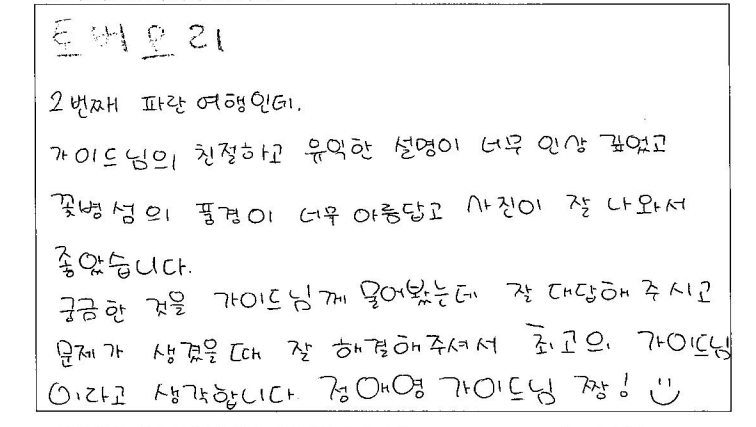 토버모리
2번째 파란 여행인데.
가이드님의 친절하고 유익한 설명이 너무 인상 깊었고
꽃병섬의 풍경이 너무 아름답고 사진이 잘 나와서
좋았습니다.
궁금한 것을 가이드님께 물어봤는데 잘 대답해 주시고
문제가 생겼을때 잘 해결해주셔서 최고의 가이드님
이라고 생각합니다. 정애영 가이드님 짱! ☺